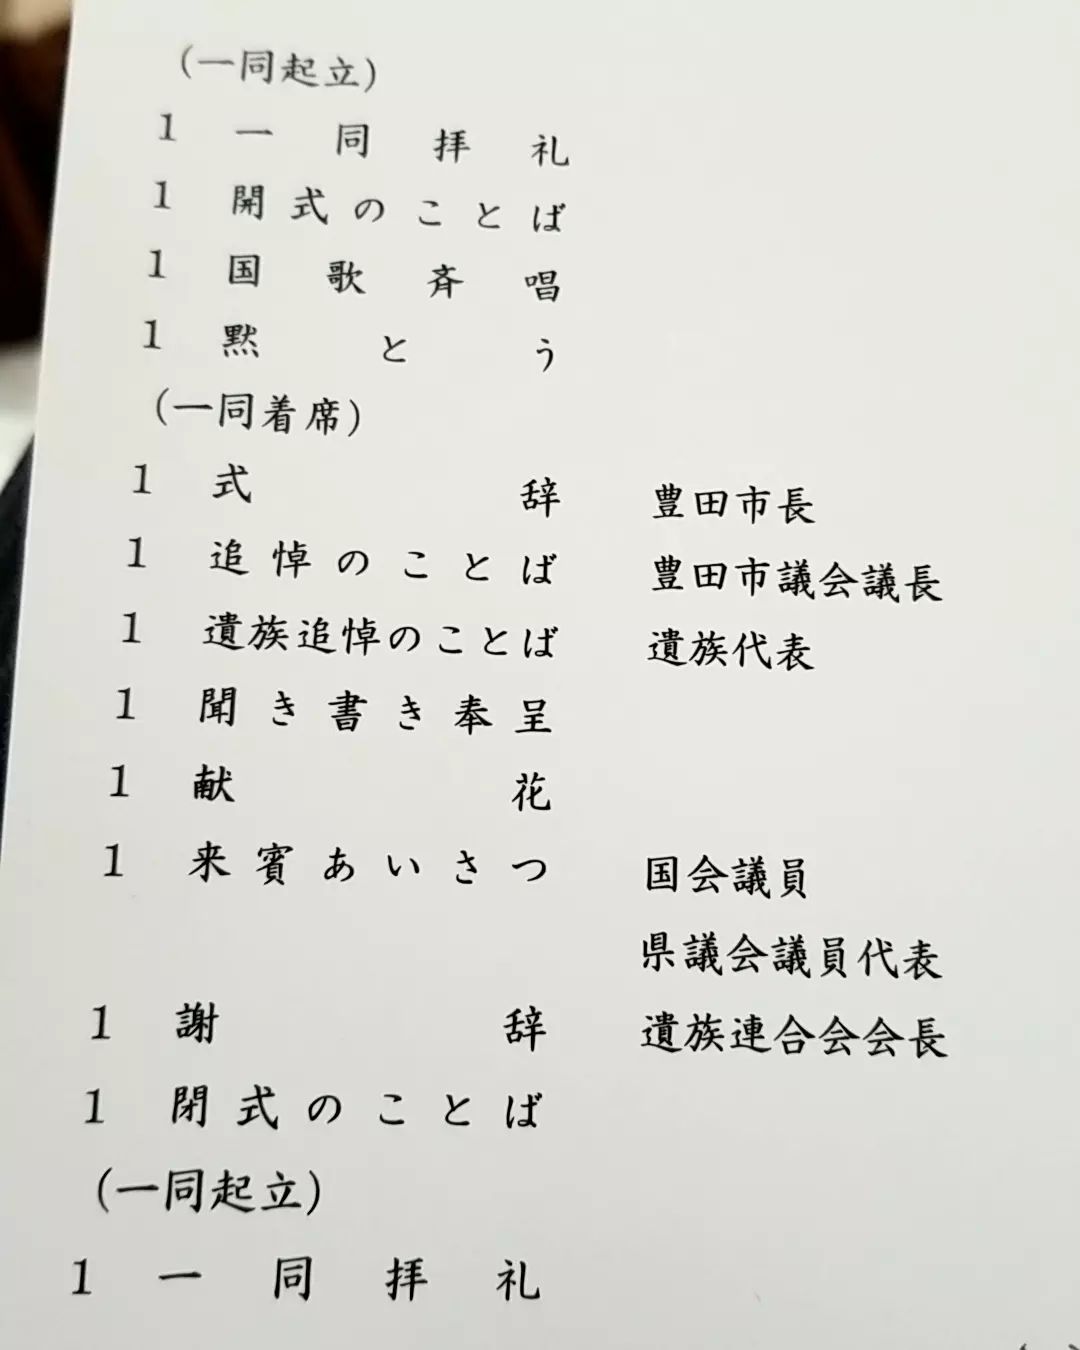 （一同起立）
1 一同拝礼
1 開式のことば
1 国歌斉唱
1 黙とう
（一同着席）
1 式辞 豊田市長
1 追悼のことば 豊田市議会議長
1 遺族追悼のことば 遺族代表
1 聞き書き奉呈
1 献花
1 来賓あいさつ 国会議員
県議会議員代表
1 謝辞 遺族連合会会長
1 閉式のことば
（一同起立）
1 一同拝礼